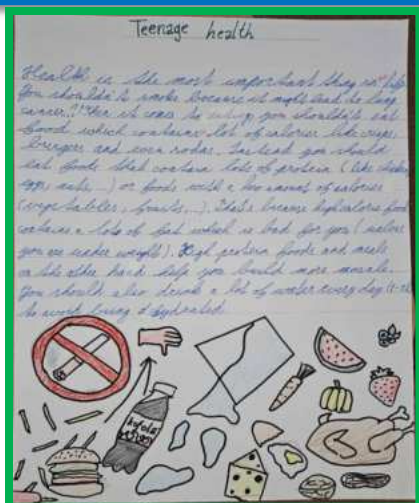 Teenage health
Health is the most important thing in life
You shouldn't smoke because it might lead to lung
cancer. When it comes to eating you shouldn't eat
food which contains lot of calories like crisps,
burgers and even sodas. Instead you should
eat foods that contain lots of protein (like chicken
eggs, nuts, ...) or foods with a low amount of calories
(vegetables, fruits, ...). That's because high calorie food
contains a lots of fat which is bad for you (unless
you are under weight). High protein foods and meals
on the other hand help you build more muscle.
You should also drink a lot of water every day
to avoid being dehydrated.